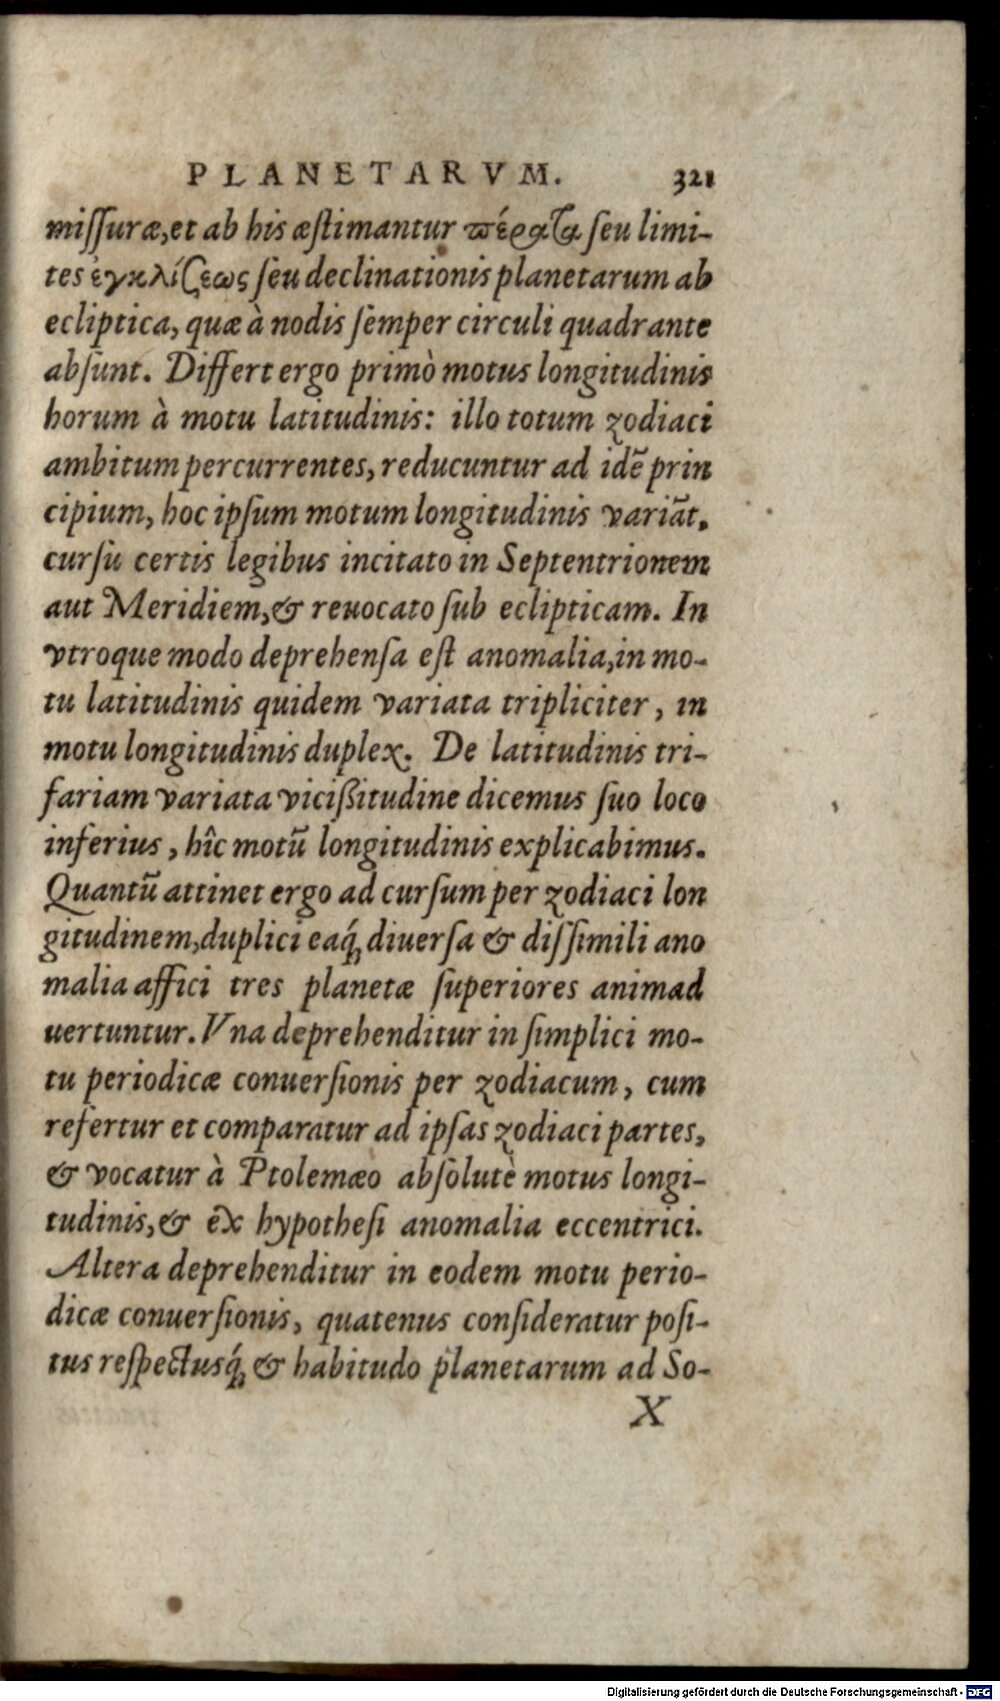 PLANETARVM. 321
miſſuræ, et ab his æſtimantur πέρατα ſeu limi-
tes ἐγκλίσεως ſeu declinationis planetarum ab
ecliptica, quæ à nodis ſemper circuli quadrante
abſunt. Differt ergo primò motus longitudinis
horum à motu latitudinis: illo totum zodiaci
ambitum percurrentes, reducuntur ad idē prin
cipium, hoc ipſum motum longitudinis variāt,
curſu certis legibus incitato in Septentrionem
aut Meridiem, & reuocato ſub eclipticam. In
vtroque modo deprehenſa eſt anomalia, in mo-
tu latitudinis quidem variata tripliciter, in
motu longitudinis duplex. De latitudinis tri-
fariam variata vicißitudine dicemus ſuo loco
inferius, hîc motū longitudinis explicabimus.
Quantū attinet ergo ad curſum per zodiaci lon
gitudinem, duplici eaq́; diuerſa & diſſimili ano
malia affici tres planetæ ſuperiores animad
uertuntur. Vna deprehenditur in ſimplici mo-
tu periodicæ conuerſionis per zodiacum, cum
refertur et comparatur ad ipſas zodiaci partes,
& vocatur à Ptolemæo abſolutè motus longi-
tudinis, & ex hypotheſi anomalia eccentrici.
Altera deprehenditur in eodem motu perio-
dicæ conuerſionis, quatenus conſideratur poſi-
tus reſpectusq́; & habitudo planetarum ad So-
X
Digitalisierung gefördert durch die Deutsche Forschungsgemeinschaft - DFG